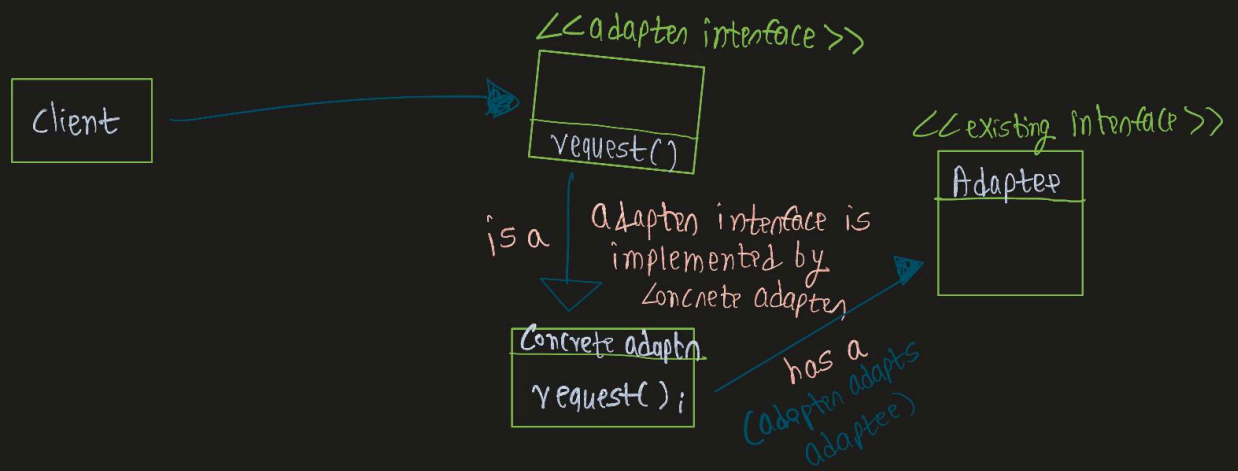 <<adapter interface>>
Client
request()
<<existing interface>>
Adaptee
is a
adapter interface is
implemented by
concrete adapter
Concrete adaptr
request();
has a
(adapter adapts
adaptee)